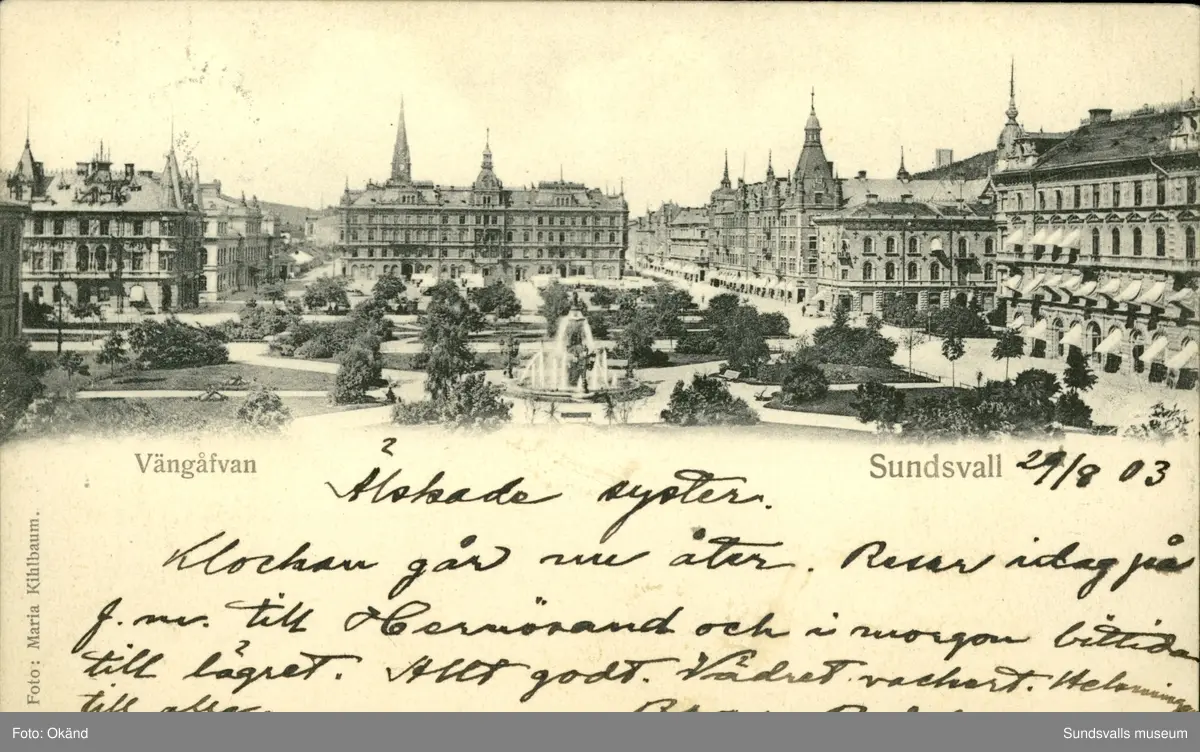 Vängåfvan
Sundsvall 29/8 03
Älskade syster.
Klockan går nu åter. Resar idag på
f.m. till Hernösand och i morgon bittida
till lägret. Allt godt. Vädret vackert. Helsningar
till alla
Foto: Maria Kihlbaum.
Foto: Okänd
Sundsvalls museum